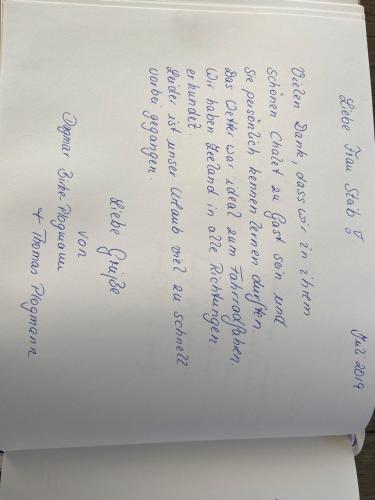 Juli 2019
Liebe Frau Stab
Vielen Dank, dass wir in ihrem
schönen Chalet zu Gast sein und
Sie persönlich kennen lernen durften.
Das Wetter war ideal zum Fahrradfahren.
Wir haben Zeeland in alle Richtungen
erkundet.
Leider ist unser Urlaub viel zu schnell
vorbei gegangen.
Liebe Grüße
von
Dagmar Plogmann
+ Thomas Plogmann